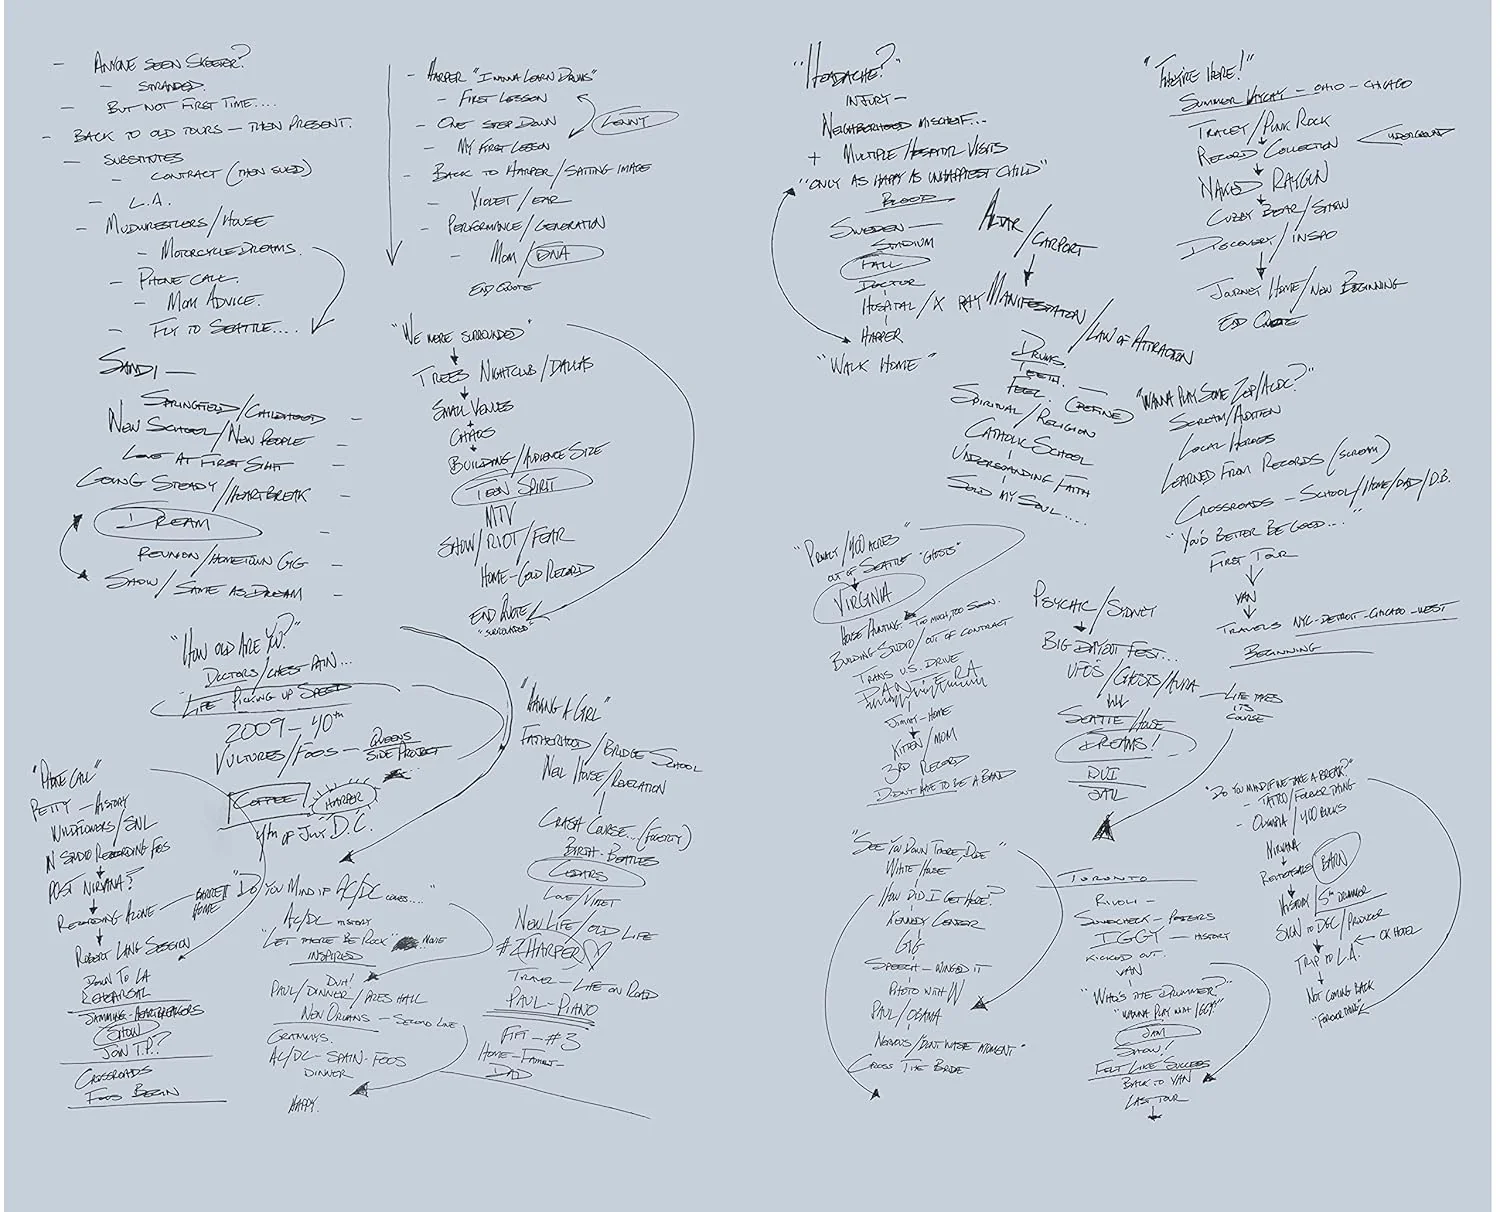 - ANYONE SEEN SKEETER?
- STRANDED.
- BUT NOT FIRST TIME....
- BACK TO OLD TOURS - THEN PRESENT.
- SUBSTITUTES
- CONTRACT (THEN SUED)
- L.A.
- MUDWRESTLERS/HOUSE
- MOTORCYCLE DREAMS.
- PHONE CALL.
- MOM ADVICE.
- FLY TO SEATTLE....
SANDI —
SPRINGFIELD/CHILDHOOD -
NEW SCHOOL/NEW PEOPLE -
LOVE AT FIRST SIGHT -
GOING STEADY/HEARTBREAK -
DREAM
REUNION/HOMETOWN GIG -
SHOW/SAME AS DREAM -
- HARPER "I WANNA LEARN DRUMS"
- FIRST LESSON
- ONE STEP DOWN
LENNY
- MY FIRST LESSON
- BACK TO HARPER/SPITTING IMAGE
- VIOLET/EAR
- PERFORMANCE/GENERATION
- MOM/DNA
END QUOTE
"WE WERE SURROUNDED"
TREES NIGHTCLUB/DALLAS
SMALL VENUES
+
CHAOS
BUILDING/AUDIENCE SIZE
TEEN SPIRIT
MTV
SHOW/RIOT/FEAR
HOME-GOLD RECORD
END QUOTE
"SURROUNDED"
"HOW OLD ARE YU?"
DOCTORS/CHEST PAIN...
LIFE PICKING UP SPEED
2009 - 40th
VULTURES/FOOS - QUEENS
SIDE PROJECT
COFFEE
HARPER
4TH OF JULY D.C.
"PHONE CALL"
PETTY - HISTORY
WILDFLOWERS/SNL
IN STUDIO RECORDING FOOS
POST NIRVANA?
RECORDING ALONE - BARRETT
HOME
ROBERT LANG SESSION
DOWN TO LA
REHEARSAL
JAMMING-HEARTBREAKERS
SHOW
JOIN T.P.?
CROSSROADS
FOOS BEGIN
"DO YOU MIND IF AC/DC COMES...."
AC/DC HISTORY
"LET THERE BE ROCK" MOVIE
INSPIRED
DUH!
PAUL/DINNER/PRES HALL
NEW ORLEANS - SECOND LINE
GRAMMYS.
AC/DC-SPAIN-FOOS
DINNER
HAPPY.
"HAVING A GIRL"
FATHERHOOD/BRIDGE SCHOOL
NEIL HOUSE/REVELATION
CRASH COURSE...(FOGERTY)
BIRTH-BEATLES
CEDARS
LOVE/VIOLET
NEW LIFE/OLD LIFE
#2 HARPER
TRAVEL - LIFE ON ROAD
PAUL-PIANO
#3
HOME-FAMILY-
DAD
"HEADACHE?"
INJURY -
NEIGHBORHOOD MISCHIEF...
+ MULTIPLE HOSPITAL VISITS
"ONLY AS HAPPY AS UNHAPPIEST CHILD"
BLOOD
SWEDEN —
STADIUM
FALL
DOCTOR
HOSPITAL/X RAY
HARPER
"WALK HOME"
ALTAR/CARPORT
MANIFESTATION/LAW OF ATTRACTION
DRUMS.
TEETH.
FEEL. (DEFINED)
SPIRITUAL/RELIGION
CATHOLIC SCHOOL
UNDERSTANDING FAITH
SOLD MY SOUL....
"THEY'RE HERE!"
SUMMER VAYCAY - OHIO - CHICAGO
TRACEY/PUNK ROCK
RECORD COLLECTION
UNDERGROUND
NAKED RAYGUN
CUBBY BEAR/SHOW
DISCOVERY/INSPO
JOURNEY HOME/NEW BEGINNING
END QUOTE
"WANNA PLAY SOME ZEP/AC/DC?"
SCREAM/AUDITION
LOCAL HEROES
LEARNED FROM RECORDS (SCREAM)
CROSSROADS - SCHOOL/HOME/DAD/D.B.
"YOU'D BETTER BE GOOD...."
FIRST TOUR
VAN
TRAVELS NYC-DETROIT-CHICAGO-WEST
BEGINNING
"PRIVACY/400 ACRES"
OUT OF SEATTLE "GHOSTS"
VIRGINIA
HOUSE HUNTING TOO MUCH, TOO SOON.
BUILDING STUDIO/OUT OF CONTRACT
TRANS U.S. DRIVE
PANTERA
JIMMY-HOME
KITTEN/MOM
3RD RECORD
DIDN'T HAVE TO BE A BAND
PSYCHIC/SYDNEY
BIG DAYOUT FEST...
UFO'S/GHOSTS/AURA
SEATTLE HOUSE
DREAMS!
DUI
JAIL
LIFE TAKES
ITS
COURSE
"SEE YOU DOWN THERE, DUDE"
WHITE HOUSE
HOW DID I GET HERE?
KENNEDY CENTER
GIG
SPEECH - WINGED IT
PHOTO WITH W
PAUL/OBAMA
NERVOUS/"DON'T WASTE MOMENT"
CROSS THE BRIDGE
TORONTO
RIVOLI -
SOUNDCHECK - POSTERS
IGGY - HISTORY
KICKED OUT.
VAN
"WHO'S THE DRUMMER?"
"WANNA PLAY WITH IGGY?"
JAM
SHOW!
FELT LIKE "SUCCESS"
BACK TO VAN
LAST TOUR
"DO YOU MIND IF WE TAKE A BREAK?"
- TATTOO/FOREVER THING
- OLYMPIA/400 BUCKS
NIRVANA
REHEARSALS BARN
HISTORY/5TH DRUMMER
SIGN TO DGC/PRODUCER
TRIP TO L.A. OK HOTEL
NOT COMING BACK
"FOREVER THING"